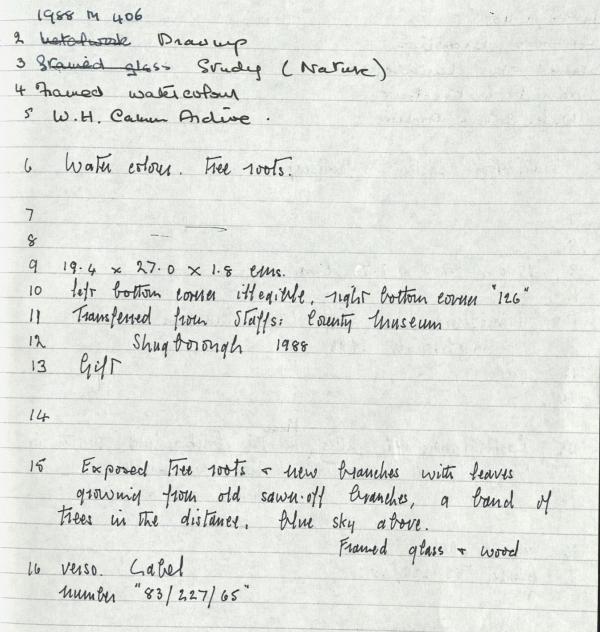 1988 M 406
2 Metalwork Drawing
3 Stained glass Study (Nature)
4 Framed watercolour
5 W.H. Archive.
6 Water colour. Tree roots.
7
8
9 19.4 x 27.0 x 1.8 cms.
10 left bottom corner illegible, right bottom corner "126"
11 Transferred from Staffs: County Museum
12 Shugborough 1988
13 Gift
14
15 Exposed Tree roots + new branches with leaves
growing from old sawn-off branches, a band of
trees in the distance, blue sky above.
Framed glass + wood
16 verso. Label
number "83/227/65"